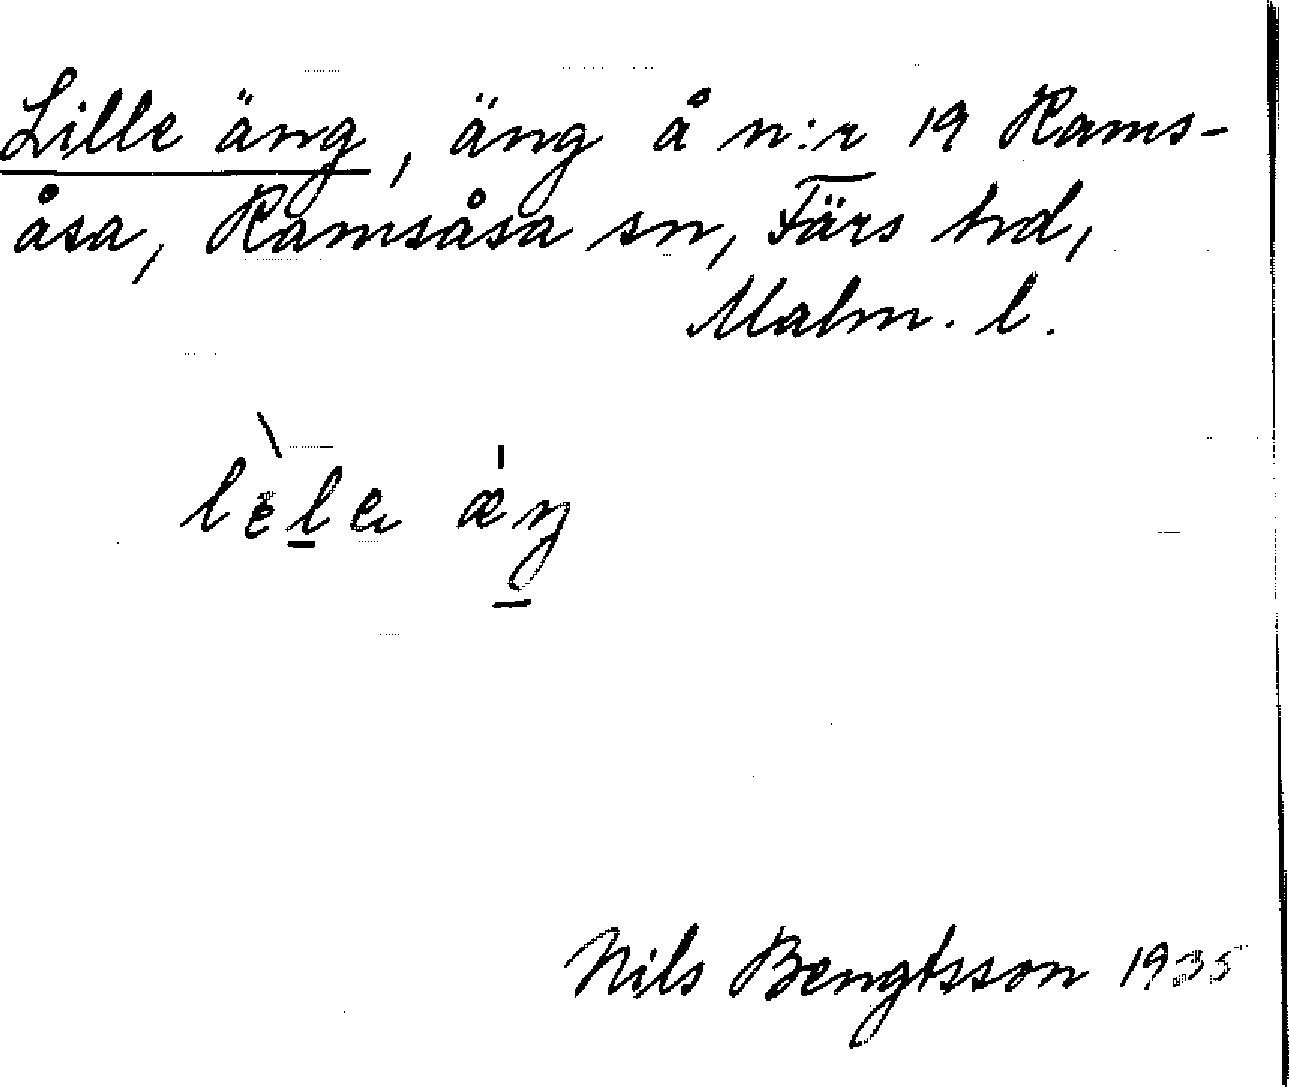 Lille äng, äng å n:r 19 Rams-
åsa, Ramsåsa sn, Färs hd,
Malm. l.
lèle æŋ
Nils Bengtsson 1935